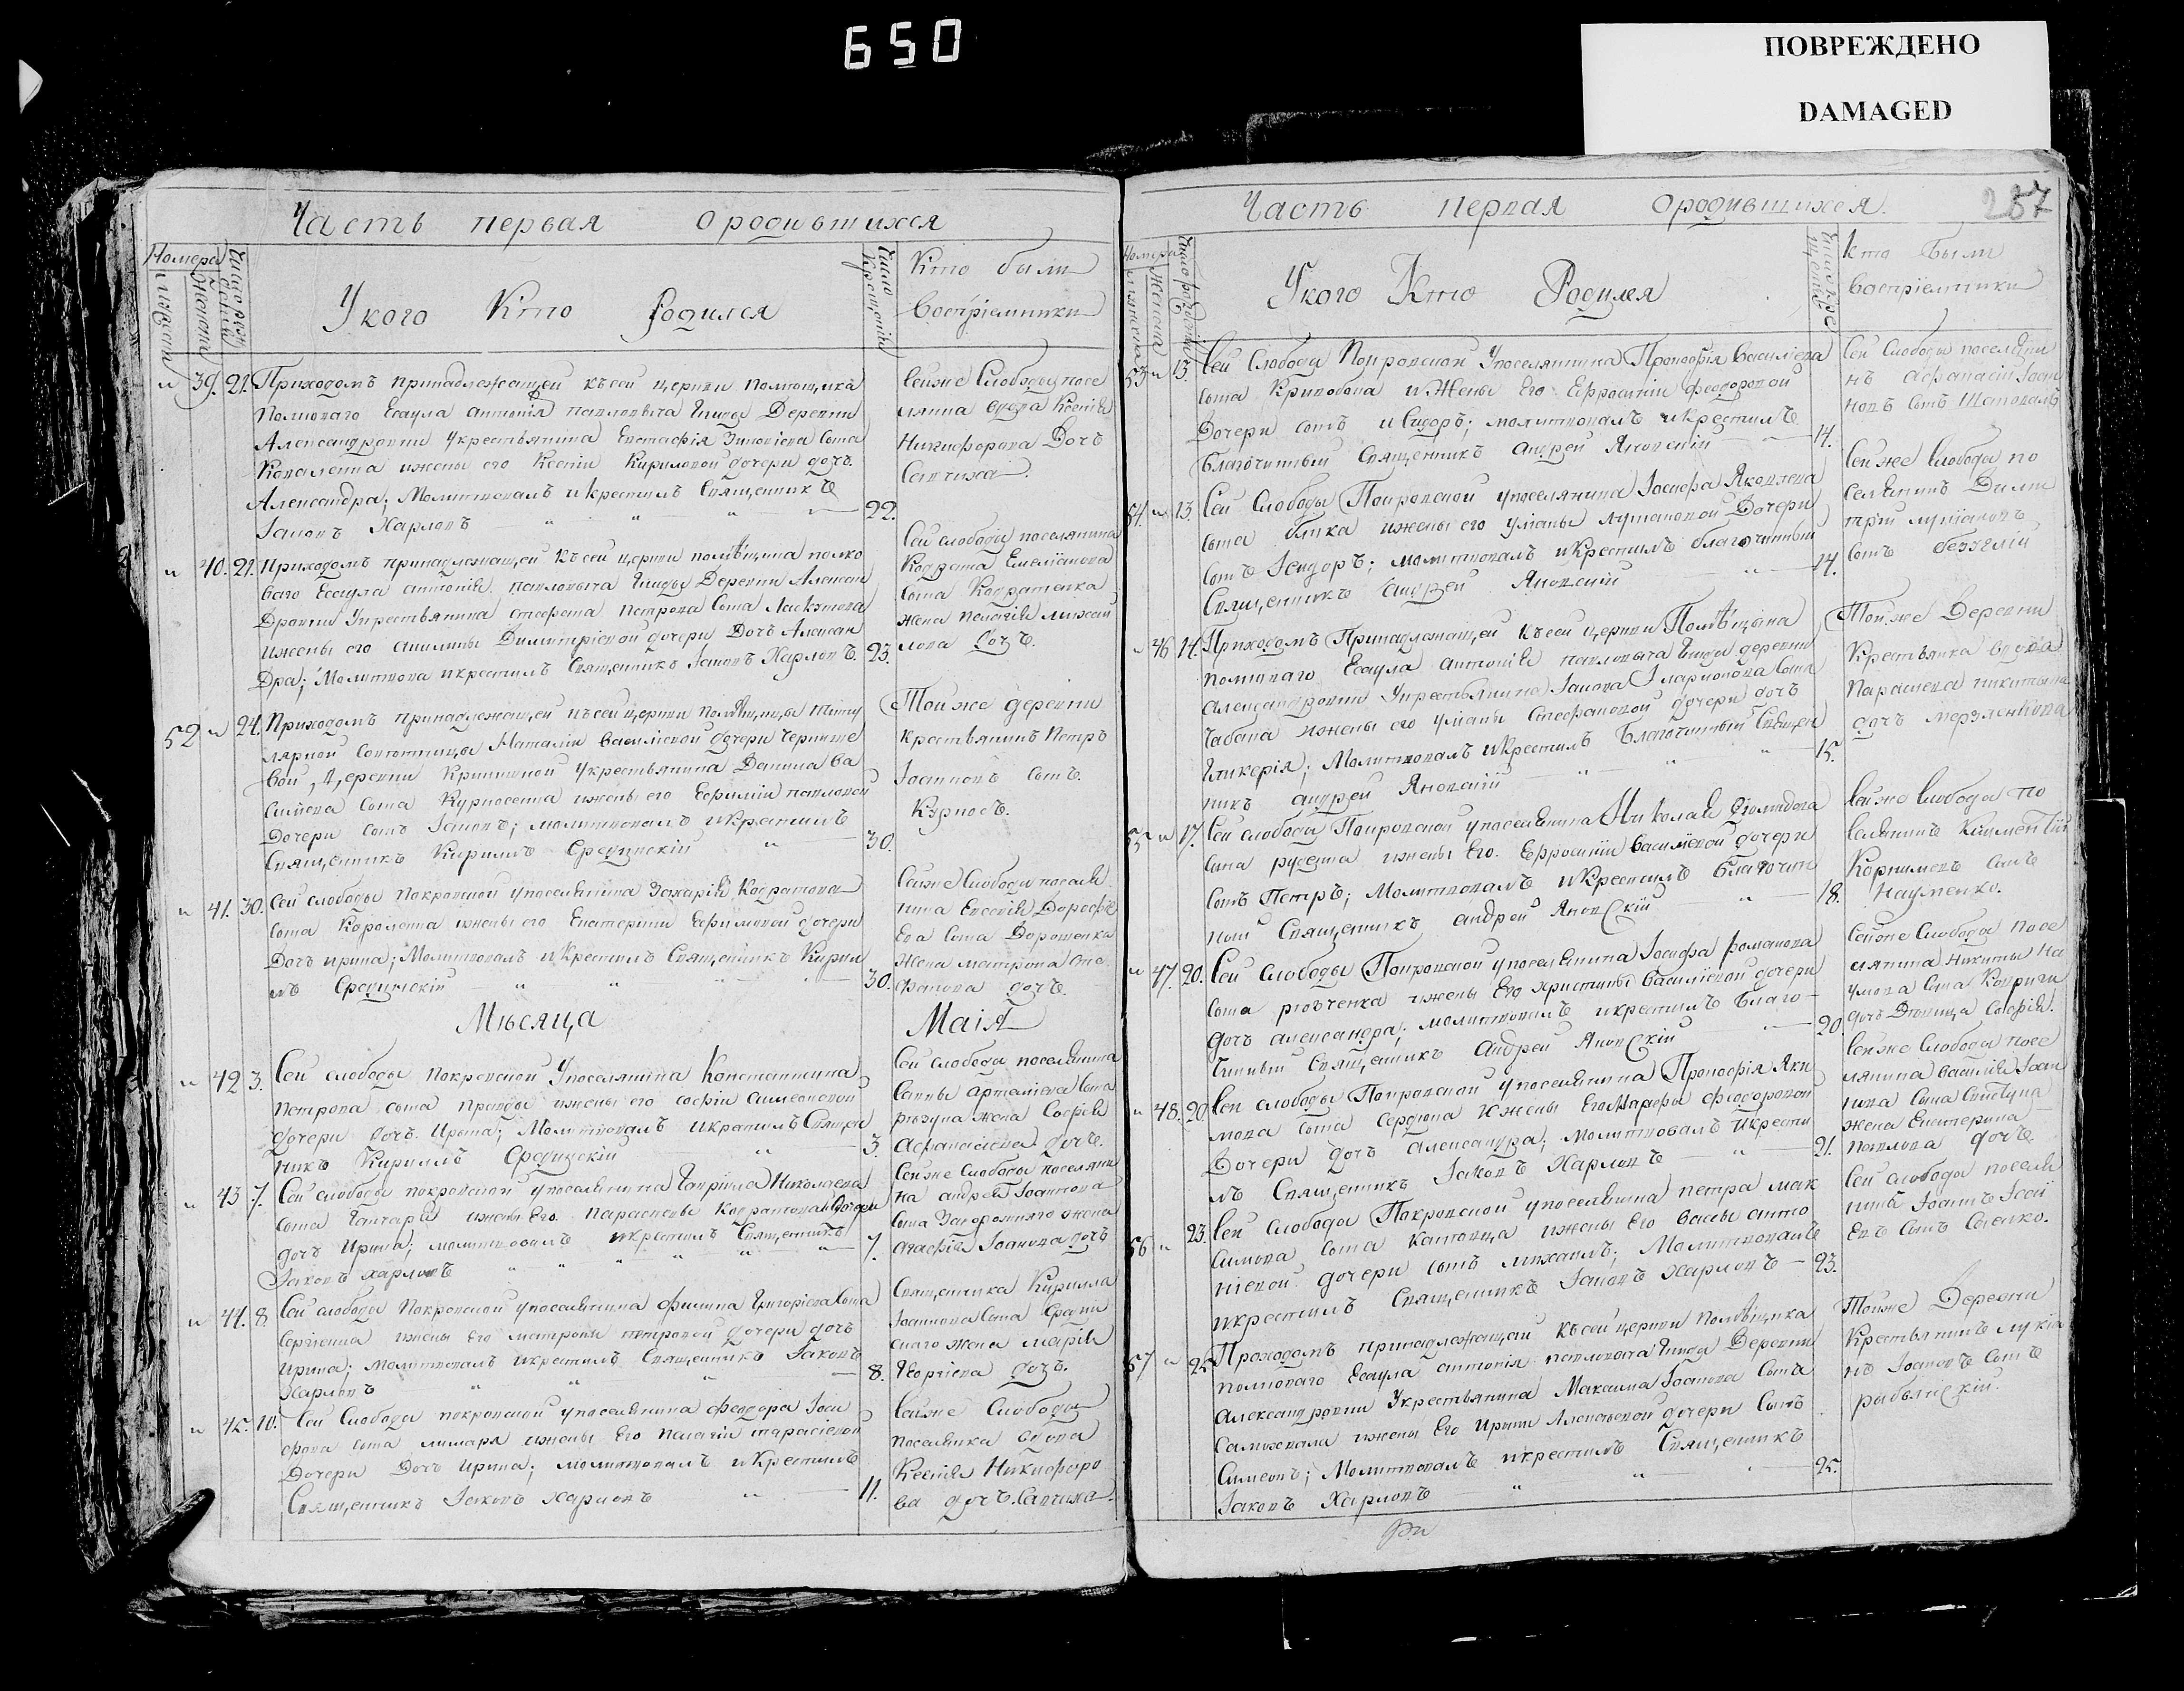 650
ПОВРЕЖДЕНО
DAMAGED
Часть первая о родившихся
Номера
Кто были
Восприемники
У кого Кто Родился
39. 21. Приходомъ принадлежащей къ сей церкви помющика
Полковаго Есаула Антонія Павловича Деревни
Александровки у крестьянина Евстафія Зиновіева сына
Коваленка и жены его Ксеніи Кириловой дочери дочь
Александра; Молитвовалъ и крестилъ Священникъ
Іаковъ Харловъ 22.
Сей же Слободы посе
лянина вдова Ксенія
Никифорова Дочь
Савчиха.
40. 21. Приходомъ принадлежащей къ сей церкви помѣщика полко
ваго Есаула Антонія Павловича Деревни Александ
дровки У крестьянина Стефана Петрова Сына
и жены его Акилины Димитріевой дочери Дочь Алексан
дра; Молитвова и крестилъ Священникъ Іаковъ Харловъ. 23.
Сей слободы поселянина
Кодрата Емеліанова
сына Кодратенка
жена Пелагія Михай
лова Дочь.
52 24. Приходомъ принадлежащей къ сей церкви помѣщицы титу
лярной Совѣтницы Наталіи Василіевой дочери Черныше
вой, Деревни у крестьянина Данила Ва
силіева сына Курносенка и жены его Евфиміи Павловой
Дочери сынъ Іаковъ; молитвовалъ и крестилъ
Священникъ Кириллъ Срединскій 30.
Той же деревни
крестьянинъ Петръ
Іоанновъ сынъ.
Курносъ.
41. 30. Сей слободы Покровской у поселянина Захарія Кодратова
сына Короленка и жены его Екатерины Ефимовой дочери
Дочь Ирина; Молитвовалъ и крестилъ Священникъ Кирил
лъ Средински 30.
Сей же Слободы поселя
нина Евсевія Дорофѣ
Ева Сына Дорошенка
Жена Матрона Сте
фанова дочь.
Мѣсяца Маія
42 3. Сей слободы Покровской У поселянина Константина
Петрова сына Правды и жены его Софіи Симеоновой
дочери дочь Ирина; Молитвовалъ и крестилъ Священ
никъ Кириллъ Средицскій 3.
Сей слободы поселянина
Саввы Артеміева сына
жена Софія
Афанасіева дочь.
43 7. Сей слободы покровской у поселянина Гавріила Николаева
сына Ганчаря и жены Его Парасковіи Кодратовой дочери
дочь Ирина; молитвовалъ и крестилъ Священникъ
Іаковъ Харловъ 7.
Сей же Слободы поселяни
на Андрея Іоаннова
сына Загорожнаго жена
Агафія Іоанова дочь
44. 8 Сей слободы Покровской у поселянина Филипа Григоріева Сына
Сергіенка и жены Его Матроны Петровой дочери дочь
Ирина; молитвовалъ и крестилъ Священникъ Іаковъ
Харловъ 8.
Священника Кирилла
Іоаннова Сына Среди
нскаго жена Марія
Георгіева дочь.
45. 10. Сей Слободы покровской у поселянина Феодора Іоси
фова сына Лимаря и жены Его Пелагіи Тарасіевой
Дочери Дочь Ирина; молитвовалъ и Крестилъ
Священникъ Іаковъ Харловъ 11.
Сей же Слободы
поселянка вдова
Ксенія Никифоро
ва дочь Савчиха.
Часть первая о родившихся. 287
Номера
У кого Кто Родился
Кто были
восприемники
53 13. Сей Слободы Покровской У поселянина Прокофія Василіева
сына Кривобока и Жены Его Ефросиніи Феодоровой
Дочери сынъ Исидоръ; молитвовалъ и крестилъ
Благочинный Священникъ Андрей Яновскій 14.
Сей Слободы поселяни
нъ Афанасій Іоан
новъ сынъ Шаповалъ
54. 13. Сей Слободы Покровской у поселянина Іосифа Яковлева
сына Быка и жены его Уліаны Лукіановой Дочери
сынъ Ісидоръ; молитвовалъ и Крестилъ благочинный
Священникъ Андрей Яновскій 14.
Сей же Слободы по
селянинъ Дими
трій Лукіановъ
сынъ
46 14. Приходомъ Принадлежащей къ сей церкви Помѣщика
полковаго Есаула Антонія Павловича деревни
Александровки У крестьянина Іакова Иларіонова сына
Чабана и жены его Уліаны Стефановой дочери дочь
Гликерія; Молитвовалъ и крестилъ Благочинный Священ
никъ Андрей Яновскій 15.
Той же Деревни
Крестьянка вдова
Параскева Никитина
дочь
55 17. Сей слободы Покровской у поселянина Николая
сына и жены Его Ефросиніи Василіевой дочери
сынъ Петръ; Молитвовалъ и Крестилъ Благочин
ный Священникъ Андрей Яновскій 18.
Сей же Слободы по
селянинъ Климентій
Корниліевъ сынъ
Науменко.
47. 20. Сей Слободы Покровской у поселянина Іосифа Романова
сына и жены Его Христины Василіевой дочери
дочь Александра; молитвовалъ и крестилъ Благо-
чинный Священникъ Андрей Яновскій 20.
Сей же Слободы посе
лянина Никиты На
умова сына
дочь Дѣвица Софія.
48. 20. Сей слободы Покровской у поселянина Прокофія Яки
мова сына Сердюка и жены Его Марфы Феодоровой
Дочери дочь Александра; молитвовалъ и крести
лъ Священникъ Іаковъ Харловъ 21.
Сей же Слободы посе
лянина Василія Іоан
нова сына
жена Екатерина
Павлова дочь
56 23. Сей слободы Покровской у поселянина Петра Мак
симова сына и жены Его Вассы Анто
ніевой дочери сынъ Михаилъ; Молитвовалъ
и крестилъ Священникъ Іаковъ Харловъ 23.
Сей слободы поселя
нинъ Іоаннъ Ісаі
евъ сынъ Саенко.
57 25 Приходомъ принадлежащей къ сей церкви помѣщика
полковаго Есаула Антонія Павловича Деревни
Александровки У крестьянина Максима Іоанова Сына
Самоквала и жены Его Ирины Алексѣевой дочери Сынъ
Симеонъ; Молитвовалъ и крестилъ Священникъ
Іаковъ Харловъ 25.
Той же Деревни
Крестьянинъ Лукія
нъ Іоановъ сынъ